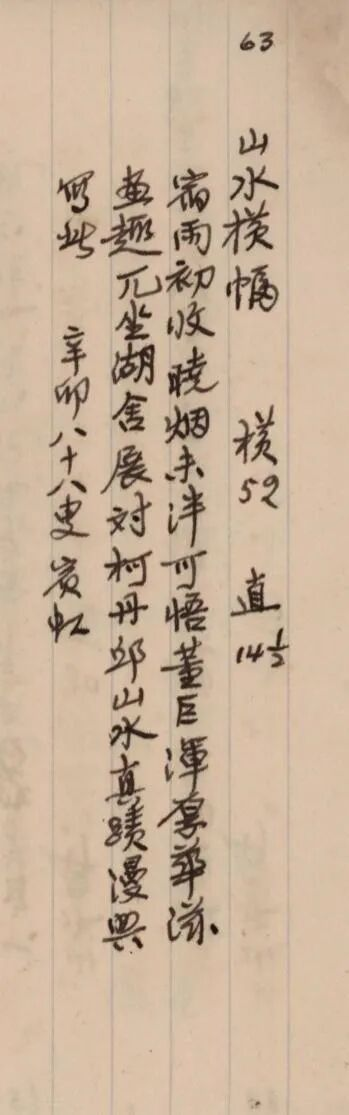 63
山水横幅 横59 直14½
宿雨初收曉烟未泮可悟董巨渾厚華滋
畫趣兀坐湖舍展对柯丹邱山水真蹟漫興
寫此 辛卯八十八叟賓虹